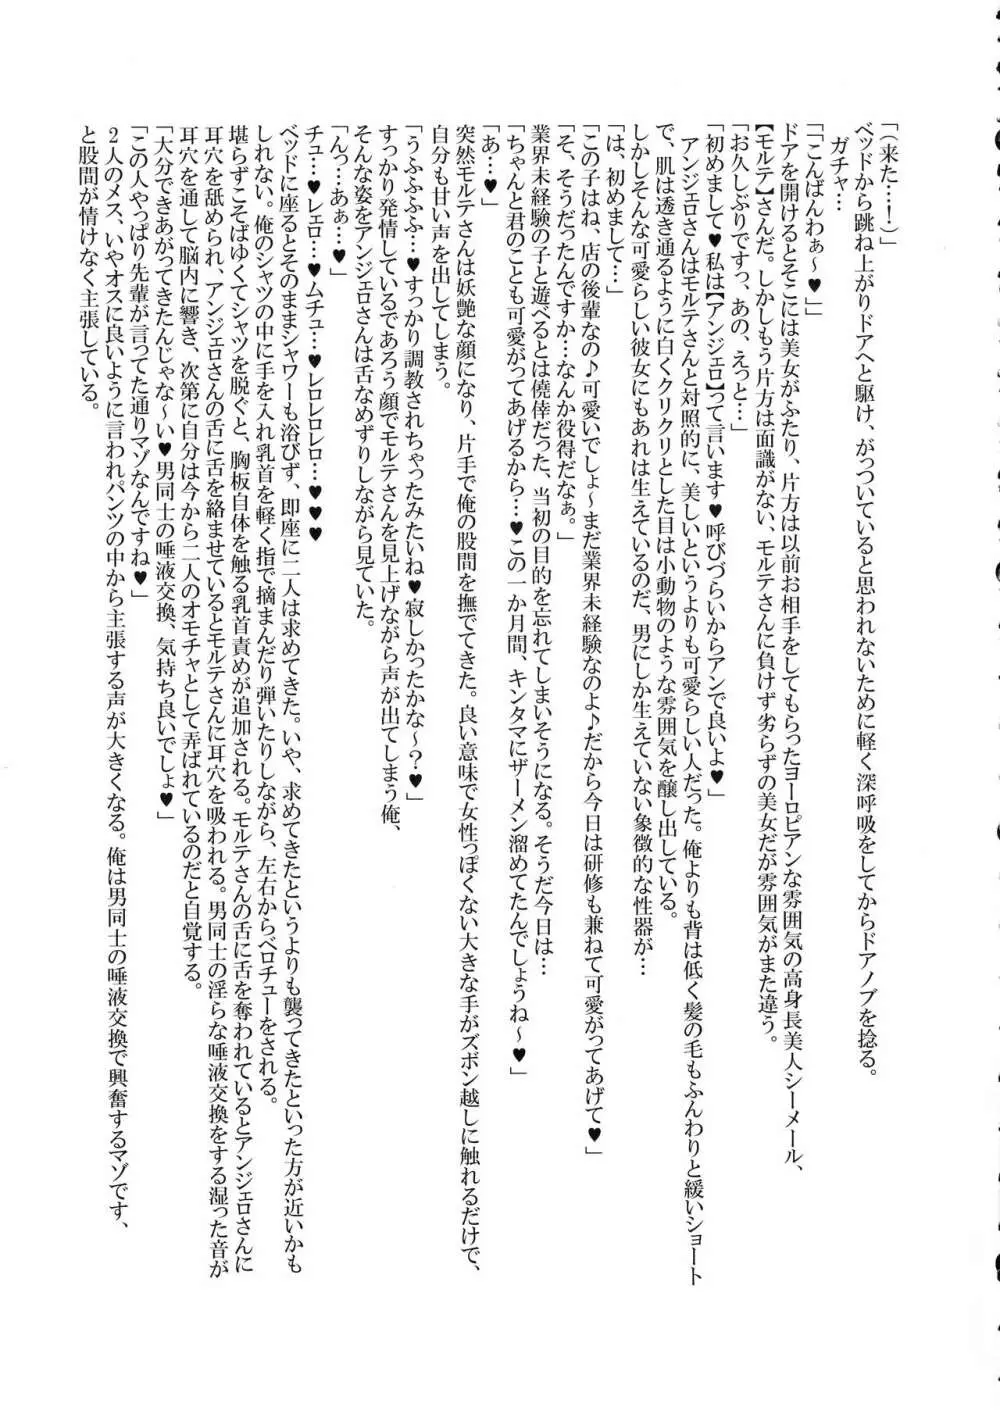 「(来た…！)」
ベッドから跳ね上がりドアへと駆け、がっついていると思われないために軽く深呼吸をしてからドアノブを捻る。
ガチャ…
「「こんばんわぁ～♥」」
ドアを開けるとそこには美女がふたり、片方は以前お相手をしてもらったヨーロピアンな雰囲気の高身長美人シーメール、
【モルテ】さんだ。しかしもう片方は面識がない、モルテさんに負けず劣らずの美女だが雰囲気がまた違う。
「お久しぶりですっ、あの、えっと…」
「初めまして♥私は【アンジェロ】って言います♥呼びづらいからアンで良いよ♥」
アンジェロさんはモルテさんと対照的に、美しいというよりも可愛らしい人だった。俺よりも背は低く髪の毛もふんわりと緩いショート
で、肌は透き通るように白くクリクリとした目は小動物のような雰囲気を醸し出している。
しかしそんな可愛らしい彼女にもあれは生えているのだ、男にしか生えていない象徴的な性器が…
「は、初めまして…」
「この子はね、店の後輩なの♪可愛いでしょ～まだ業界未経験なのよ♪だから今日は研修も兼ねて可愛がってあげて♥」
「そ、そうだったんですか…なんか役得だなぁ。」
業界未経験の子と遊べるとは僥倖だった、当初の目的を忘れてしまいそうになる。そうだ今日は…
「ちゃんと君のことも可愛がってあげるから…♥この一か月間、キンタマにザーメン溜めてたんでしょうね～♥」
「あ…♥」
突然モルテさんは妖艶な顔になり、片手で俺の股間を撫でてきた。良い意味で女性っぽくない大きな手がズボン越しに触れるだけで、
自分も甘い声を出してしまう。
「うふふふふ…♥すっかり調教されちゃったみたいね♥寂しかったかな～？♥」
すっかり発情しているであろう顔でモルテさんを見上げながら声が出てしまう俺、
そんな姿をアンジェロさんは舌なめずりしながら見ていた。
「んっ…あぁ…♥」
チュ…♥レェロ…♥ムチュ…♥レロレロレロ…♥♥♥
ベッドに座るとそのままシャワーも浴びず、即座に二人は求めてきた。いや、求めてきたというよりも襲ってきたといった方が近いかも
しれない。俺のシャツの中に手を入れ乳首を軽く指で摘まんだり弾いたりしながら、左右からベロチューをされる。
堪らずこそばゆくてシャツを脱ぐと、胸板自体を触る乳首責めが追加される。モルテさんの舌に舌を奪われているとアンジェロさんに
耳穴を舐められ、アンジェロさんの舌に舌を絡ませているとモルテさんに耳穴を吸われる。男同士の淫らな唾液交換をする湿った音が
耳穴を通して脳内に響き、次第に自分は今から二人のオモチャとして弄ばれているのだと自覚する。
「大分できあがってきたんじゃな～い♥男同士の唾液交換、気持ち良いでしょ♥」
「この人やっぱり先輩が言ってた通りマゾなんですね♥」
2人のメス、いやオスに良いように言われパンツの中から主張する声が大きくなる。俺は男同士の唾液交換で興奮するマゾです、
と股間が情けなく主張している。